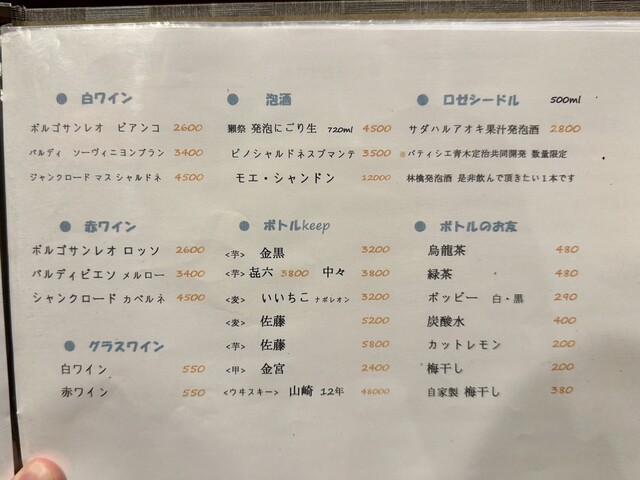 ● 白ワイン
ボルゴサンレオ ビアンコ 2600
バルディ ソーヴィニヨンブラン 3400
ジャンクロード マス シャルドネ 4500
● 泡酒
獺祭 発泡にごり生 720ml 4500
ピノシャルドネスプマンテ 3500
モエ・シャンドン 12000
● ロゼシードル 500ml
サダハルアオキ果汁発泡酒 2800
※パティシエ青木定治共同開発 数量限定
林檎発泡酒 是非飲んで頂きたい1本です
● 赤ワイン
ボルゴサンレオ ロッソ 2600
バルディビエソ メルロー 3400
シャンクロード カベルネ 4500
● グラスワイン
白ワイン 550
赤ワイン 550
● ボトルkeep
<芋> 金黒 3200
<芋> 㐂六 3800 中々 3800
<麦> いいちこ ナポレオン 3200
<麦> 佐藤 5200
<芋> 佐藤 5800
<甲> 金宮 2400
<ウヰスキー> 山崎 12年 48000
● ボトルのお友
烏龍茶 480
緑茶 480
ホッピー 白・黒 290
炭酸水 400
カットレモン 200
梅干し 200
自家製 梅干し 380